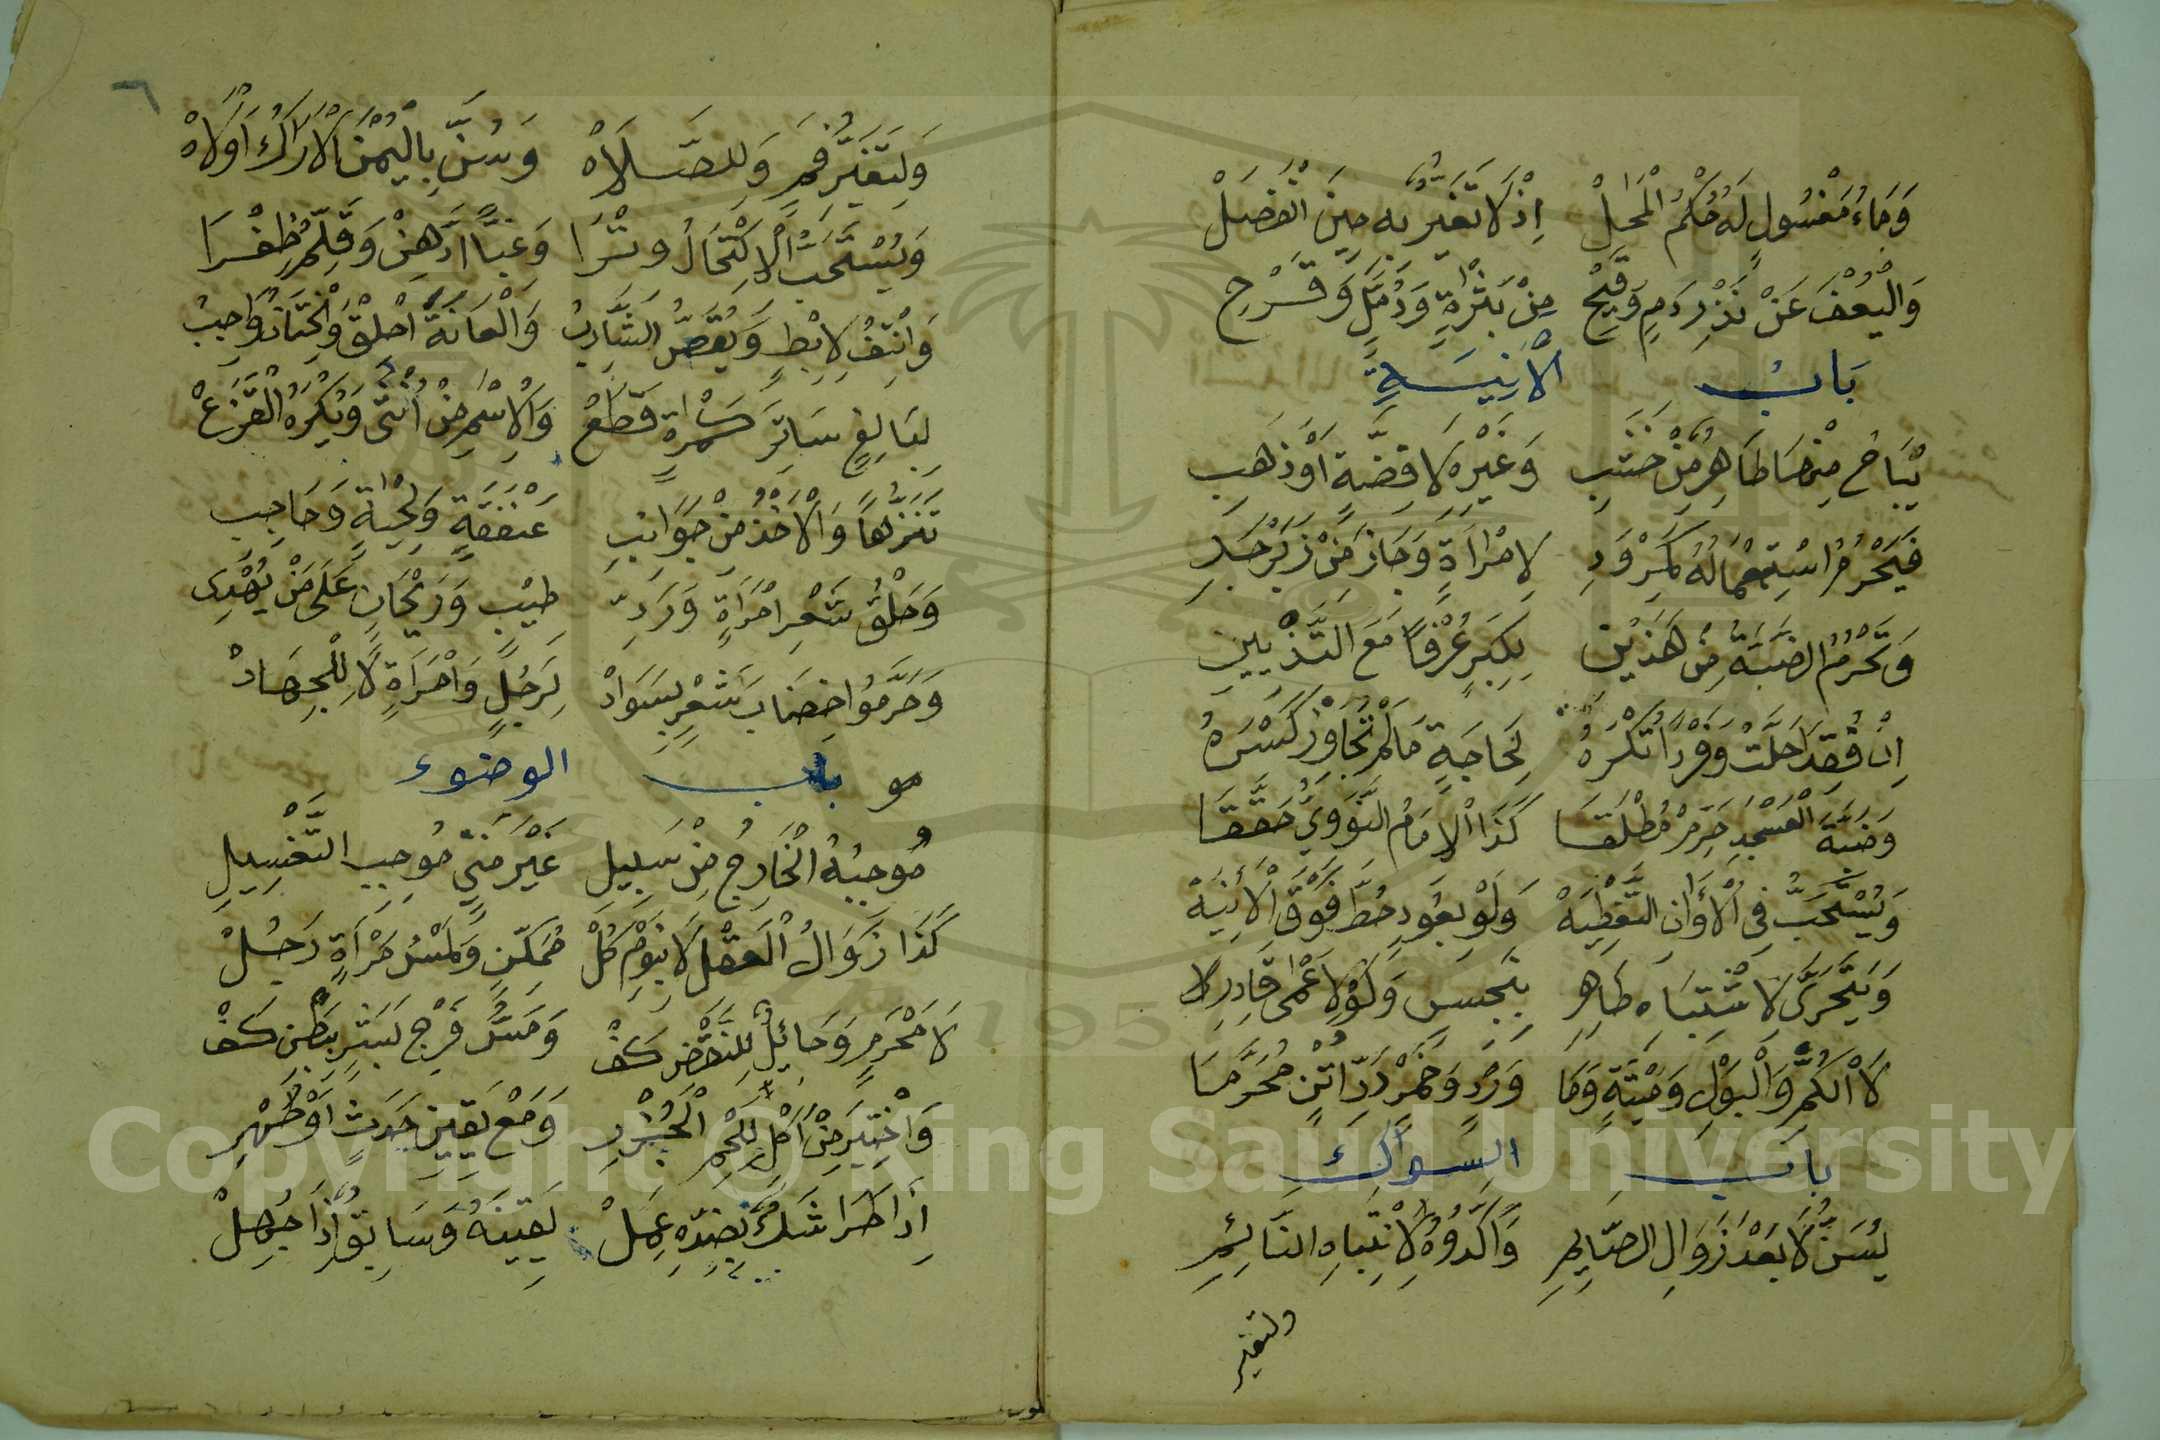 وَمَاءُ مَغْسُولٍ لَهُ حُكْمُ الْمَحِلْ إِذْ لَا تَغَيُّرٌ بِهِ حِينَ انْفَصَلْ
وَلْيُعْفَ عَنْ نَزْرِ دَمٍ وَقَيْحِ مِنْ بَثْرَةٍ وَدُمَّلٍ وَقَرْحِ
بَابُ الْآنِيَةِ
يُبَاحُ مِنْهَا طَاهِرٌ مِنْ خَشَبِ وَغَيْرِهِ لَا فِضَّةٍ أَوْ ذَهَبِ
فَيَحْرُمُ اسْتِعْمَالُهُ كَمِرْوَدِ لِامْرَأَةٍ وَجَازَ مِنْ زَبَرْجَدِ
وَتَحْرُمُ الضَّبَّةُ مِنْ هَذَيْنِ بِكِبَرٍ عُرْفًا مَعَ التَّزْيِينِ
إِنْ فُقِدَا حَلَّتْ وَفَرْدًا تُكْرَهُ لِحَاجَةٍ مَا لَمْ تُجَاوِزْ كَسْرَهُ
وَضَبَّةَ الْعَسْجَدِ حَرِّمْ مُطْلَقَا كَذَا الْإِمَامُ النَّوَوِيُّ حَقَّقَا
وَيُسْتَحَبُّ فِي الْأَوَانِ التَّغْطِيَهْ وَلَوْ بِعُودٍ حُطَّ فَوْقَ الْآنِيَهْ
وَيَتَحَرَّى لِاشْتِبَاهِ طَاهِرِ بِنَجِسٍ وَلَوْ لِأَعْمَى قَادِرِ
لَا الْكُمِّ وَالْبَوْلِ وَمَيْتَةٍ وَمَا وَرْدٍ وَخَمْرٍ دَرِّ أُتْنٍ مُحَرَّمَا
بَابُ السِّوَاكِ
يُسَنُّ لَا بَعْدَ زَوَالِ الصَّائِمِ وَأَكَّدُوهُ لِانْتِبَاهِ النَّائِمِ
ولتغير
Copyright © King Saud University
1957
٦
وَلِتَغَيُّرِ فَمٍ وَلِلصَّلَاهْ وَسُنَّ بِالْيُمْنَى الْأَرَاكُ أَوْلَاهْ
وَيُسْتَحَبُّ الْاِكْتِحَالُ وِتْرَا وَغِبًّا ادَّهِنْ وَقَلِّمْ ظُفْرَا
وَانْتِفْ لِإِبْطٍ وَيُقَصُّ الشَّارِبُ وَالْعَانَةَ احْلِقْ وَالْخِتَانُ وَاجِبُ
لِبَالِغٍ سَاتِرَ كَمْرَةٍ قَطَعْ وَالْاِسْمِ مِنْ أُنْثَى وَيُكْرَهُ الْقَزَعْ
تَنَزُّهًا وَالْأَخْذُ مِنْ جَوَانِبِ عَنْفَقَةٍ وَلِحْيَةٍ وَحَاجِبِ
وَحَلْقُ شَعْرِ امْرَأَةٍ وَرَدِّ طِيبٍ وَرَيْحَانٍ عَلَى مَنْ يُهْدِى
وَحَرَّمُوا خِضَابَ شَعْرٍ بِسَوَادْ لِرَجُلٍ وَامْرَأَةٍ لَا لِلْجِهَادْ
باب الوضوء
مُوجِبُهُ الْخَارِجُ مِنْ سَبِيلِ غَيْرَ مَنِيٍّ مُوجِبِ التَّغْسِيلِ
كَذَا زَوَالُ الْعَقْلِ لَا بِنَوْمِ كُلْ مُمَكِّنٍ وَلَمْسُ مَرْأَةٍ رَجُلْ
لَا مَحْرَمٍ وَحَائِلٌ لِلنَّقْضِ كَفْ وَمَسُّ فَرْجِ بَشَرٍ بِبَطْنِ كَفْ
وَاخْتِيرَ مِنْ أَكْلٍ لِلَحْمِ الْجُزُرِ وَمَعْ يَقِينِ حَدَثٍ أَوْ طُهْرِ
إِذَا طَرَا شَكٌّ بِضِدِّهِ عَمِلْ يَقِينَهُ وَسَابِقٌ إِذَا جُهِلْ